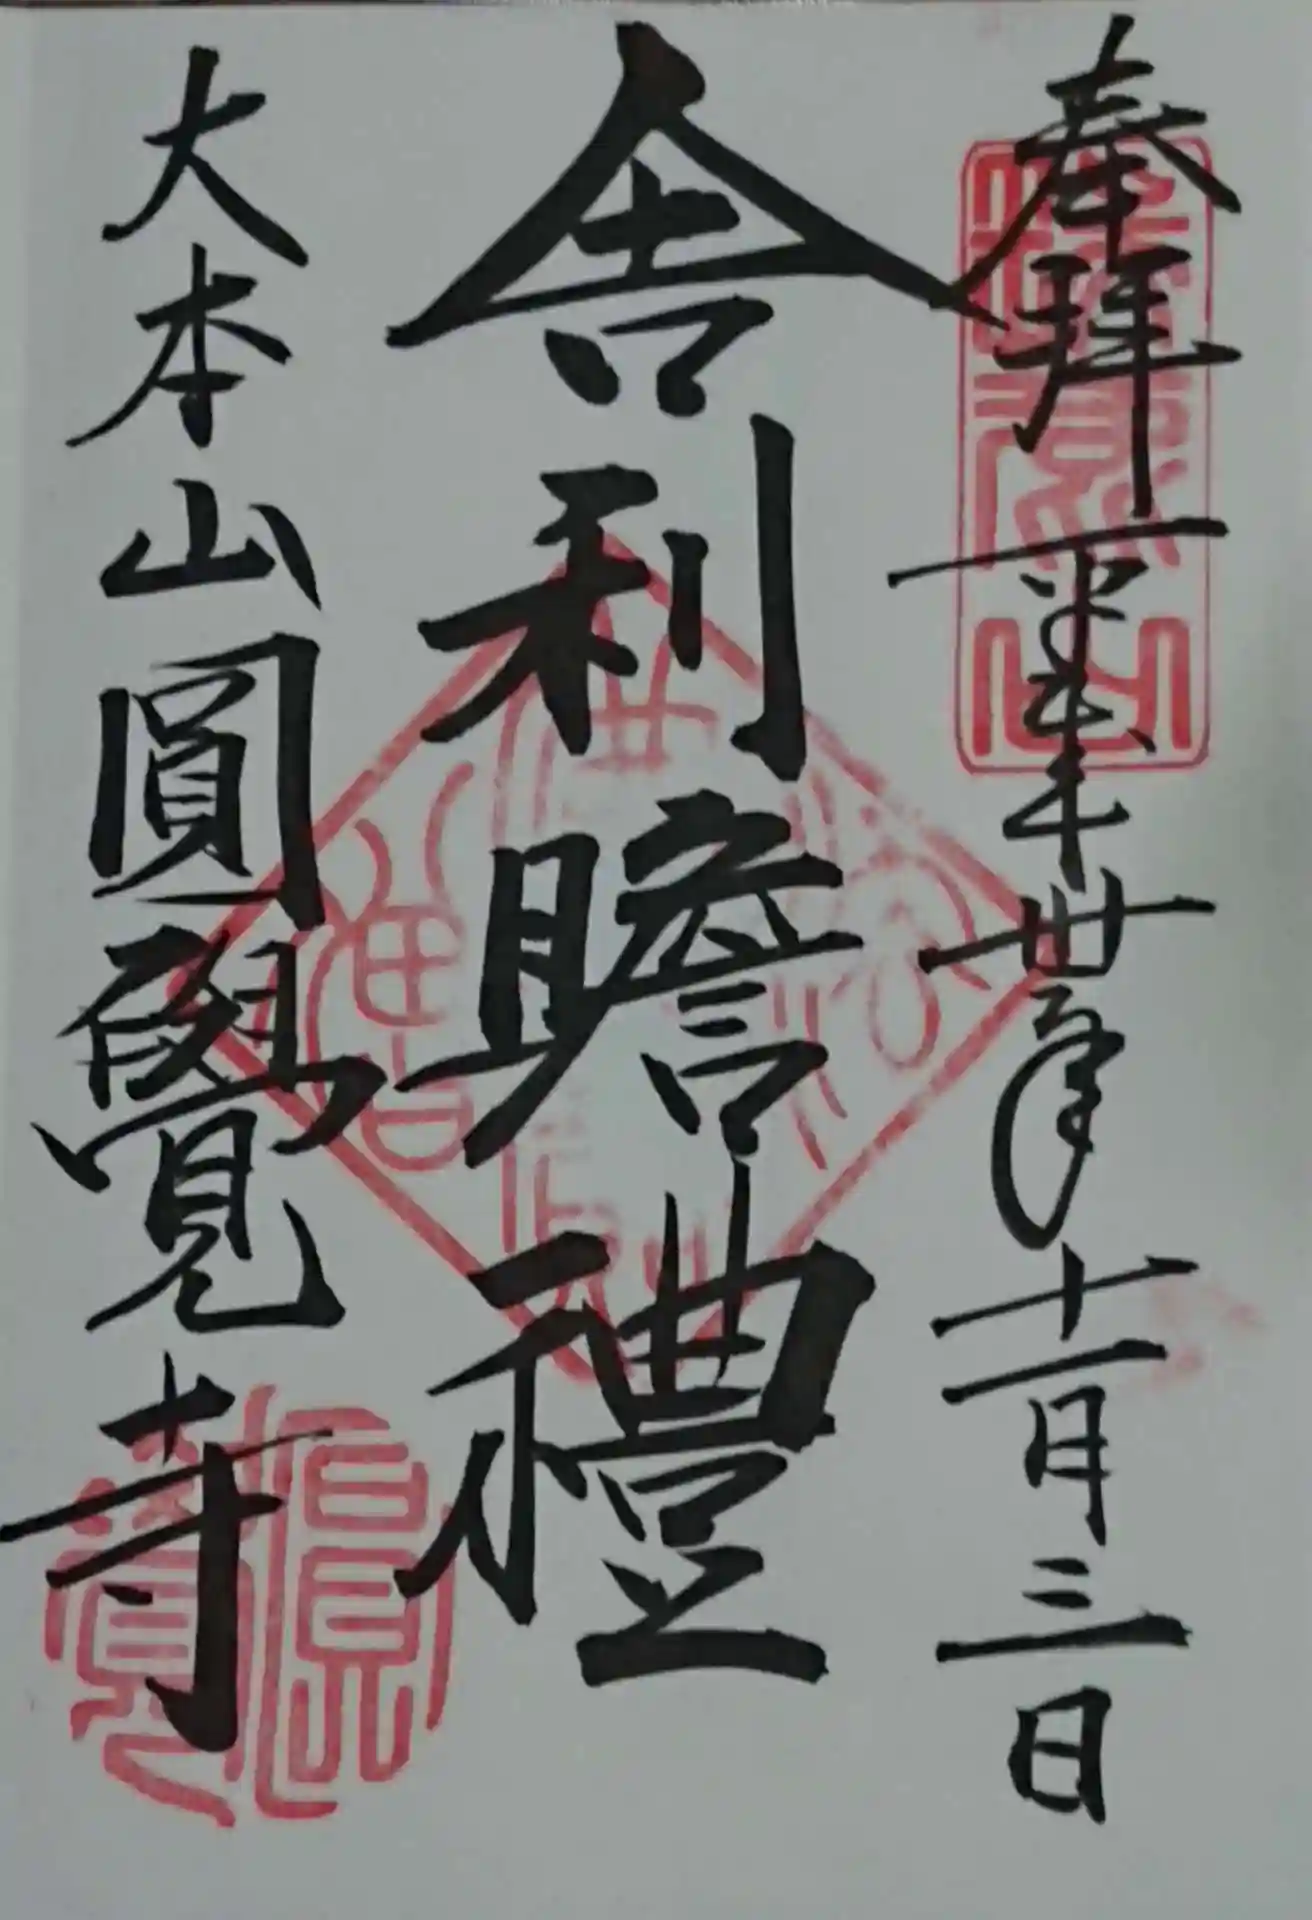 奉拜 平成卅年十一月三日
舎利瞻禮
大本山圓覺寺